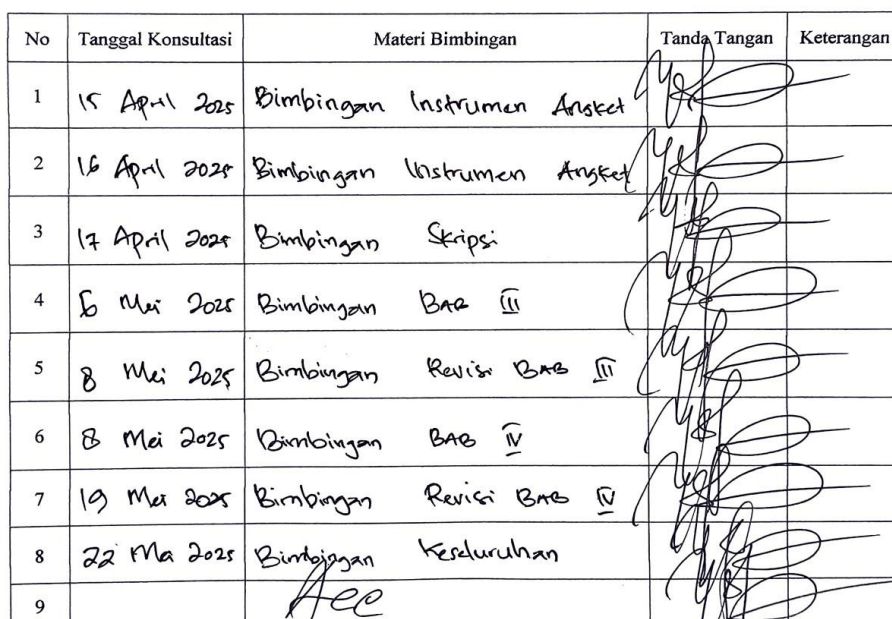 No Tanggal Konsultasi Materi Bimbingan Tanda Tangan Keterangan
1 15 April 2025 Bimbingan Instrumen Angket
2 16 April 2025 Bimbingan Instrumen Angket
3 17 April 2025 Bimbingan Skripsi
4 6 Mei 2025 Bimbingan BAB III
5 8 Mei 2025 Bimbingan Revisi BAB III
6 8 Mei 2025 Bimbingan BAB IV
7 19 Mei 2025 Bimbingan Revisi BAB IV
8 22 Me 2025 Bimbingan Keseluruhan
9 Acc